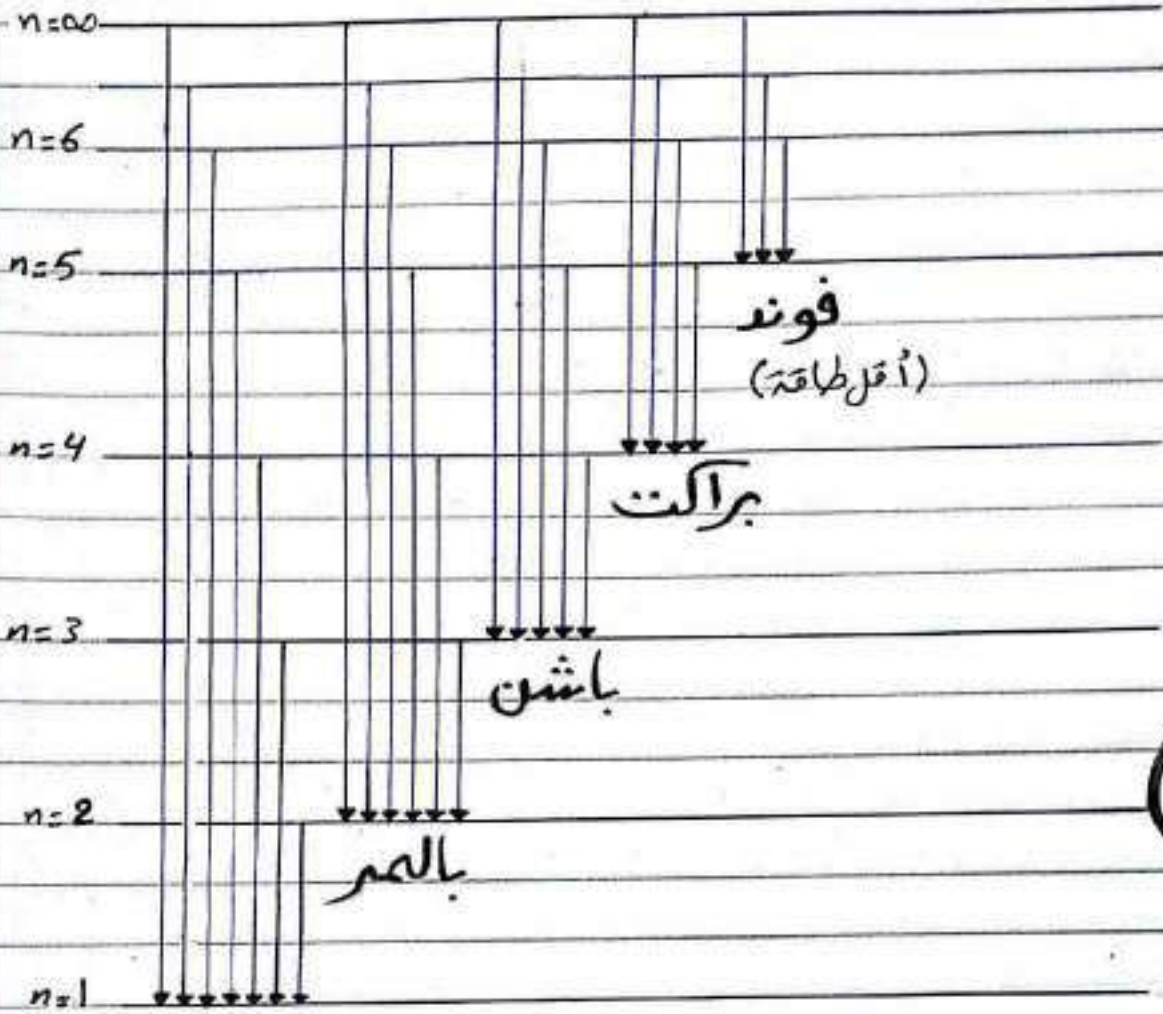 n=∞
n=6
n=5
فوند
(أقل طاقة)
n=4
براكت
n=3
باشن
n=2
بالمر
n=1